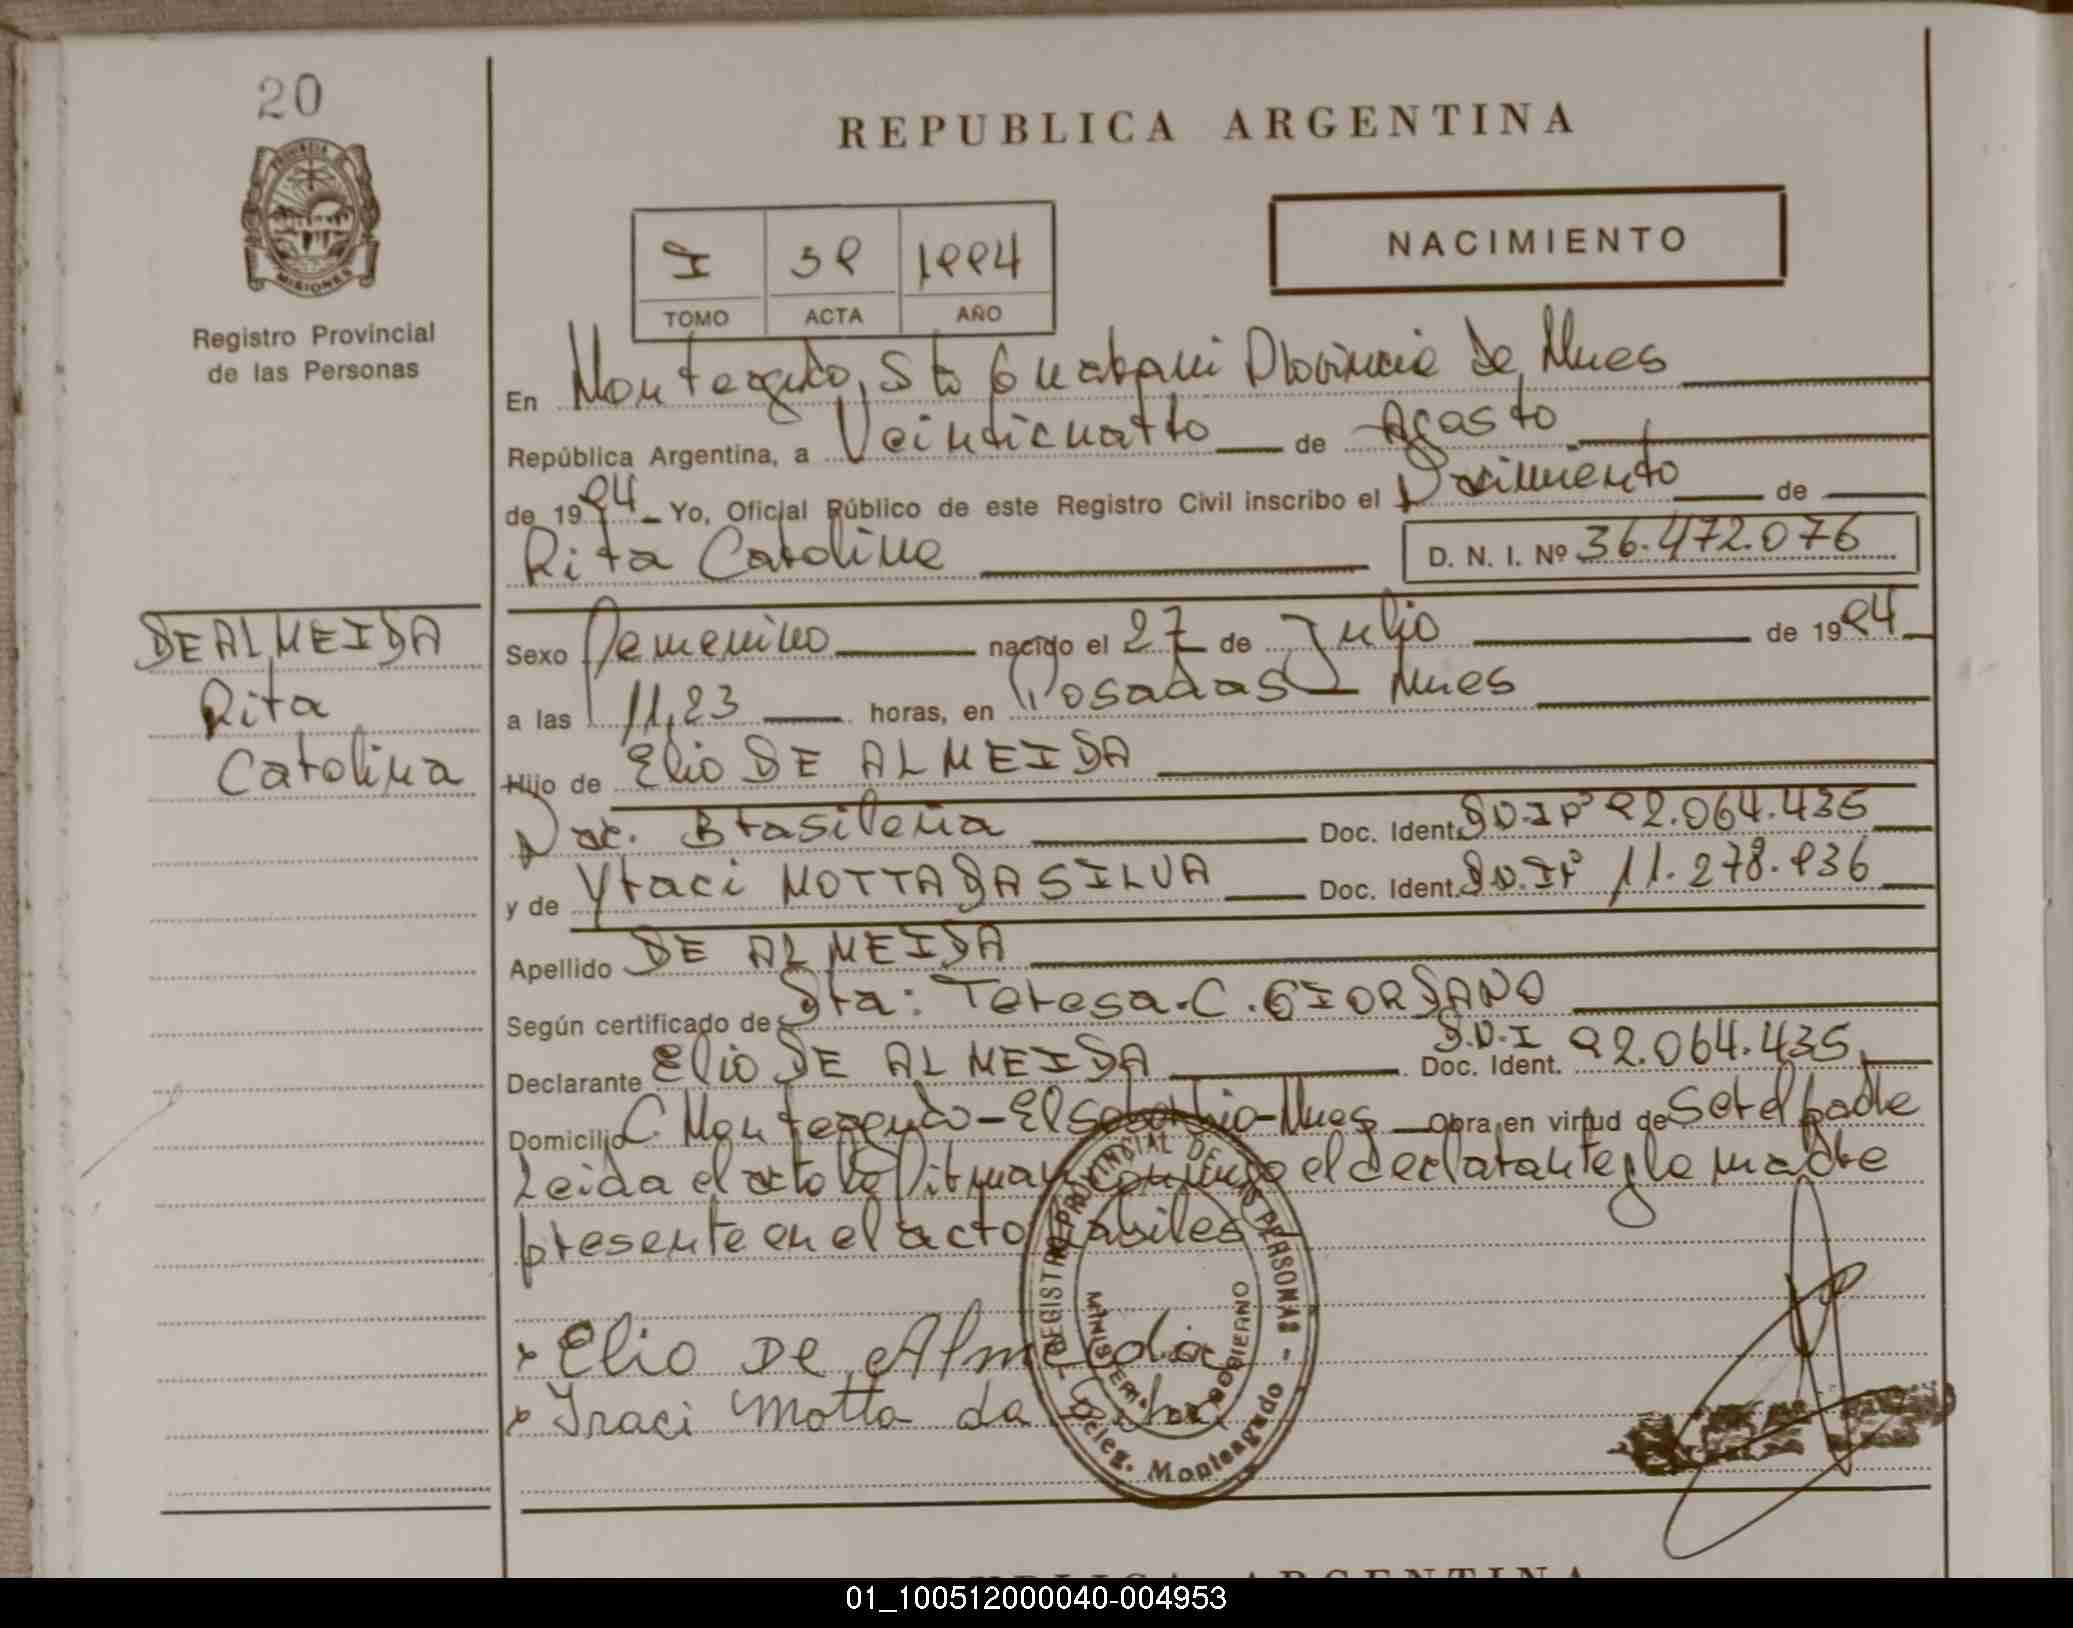 20
REPUBLICA ARGENTINA
PROVINCIA DE
MISIONES
Registro Provincial
de las Personas
I 39 1994
TOMO ACTA AÑO
NACIMIENTO
En Monteagudo, Sto Guarani Provincia de Mnes
República Argentina, a Veinticuatro de Agosto
de 1994 Yo, Oficial Público de este Registro Civil inscribo el Nacimiento de
Rita Carolina D. N. I. Nº 36.472.076
DE ALMEIDA
Rita
Carolina
Sexo Femenino nacido el 27 de Julio de 1994
a las 11,23 horas, en Posadas Mnes
Hijo de Elio DE ALMEIDA
Nac. Brasileña Doc. Ident. D.N.I Nº 92.064.435
y de Ytaci MOTTA DA SILVA Doc. Ident. D.N.I Nº 11.278.936
Apellido DE ALMEIDA
Según certificado de Dra: Teresa.C.GIORDANO
Declarante Elio DE ALMEIDA Doc. Ident. D.N.I 92.064.435
Domicilio C. Monteagudo-El Mnes Obra en virtud de ser el padre
Leida el acta la firman conmigo el declarante y la madre
presente en el acto
Elio De Almeida
Iraci Motta da
REGISTRO PROVINCIAL DE LAS PERSONAS -
MINISTERIO DE GOBIERNO
Deleg. Monteagudo
REPUBLICA ARGENTINA
01_100512000040-004953